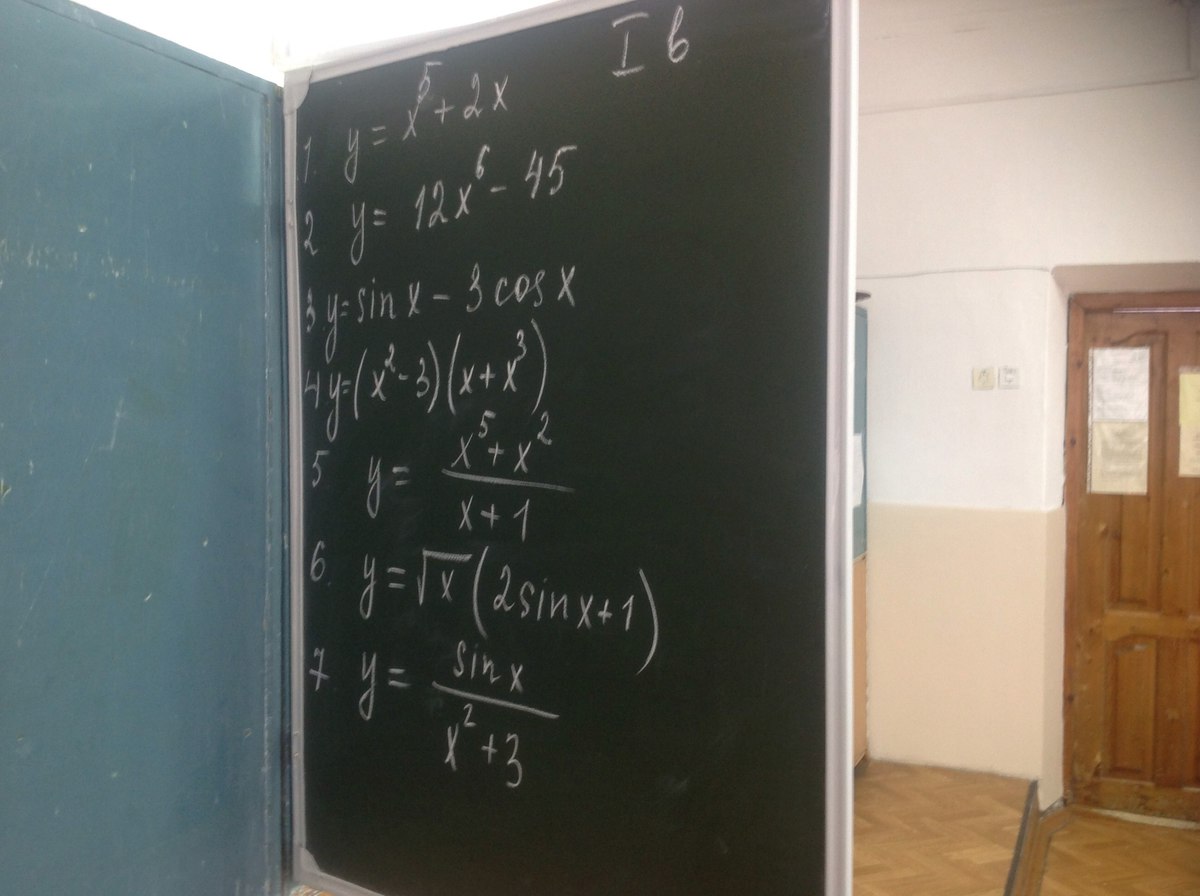 I в
1. y = x⁵ + 2x
2 y = 12x⁶ - 45
3 y = sin x - 3 cos x
4 y = (x² - 3)(x + x³)
5 y = (x⁵ + x²)/(x + 1)
6. y = √x (2 sin x + 1)
7. y = sin x/(x² + 3)